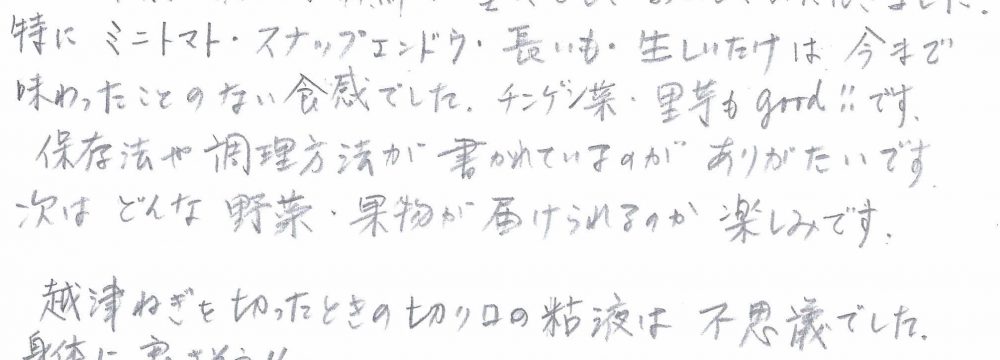 特に ミニトマト・スナップエンドウ・長いも・生しいたけは 今まで
味わったことのない食感でした。チンゲン菜・里芋もgood!!です。
保存法や調理方法が書かれているのがありがたいです
次は どんな 野菜・果物が届けられるのか 楽しみです。
越津ねぎを切ったときの切り口の粘液は 不思議でした。
身体に